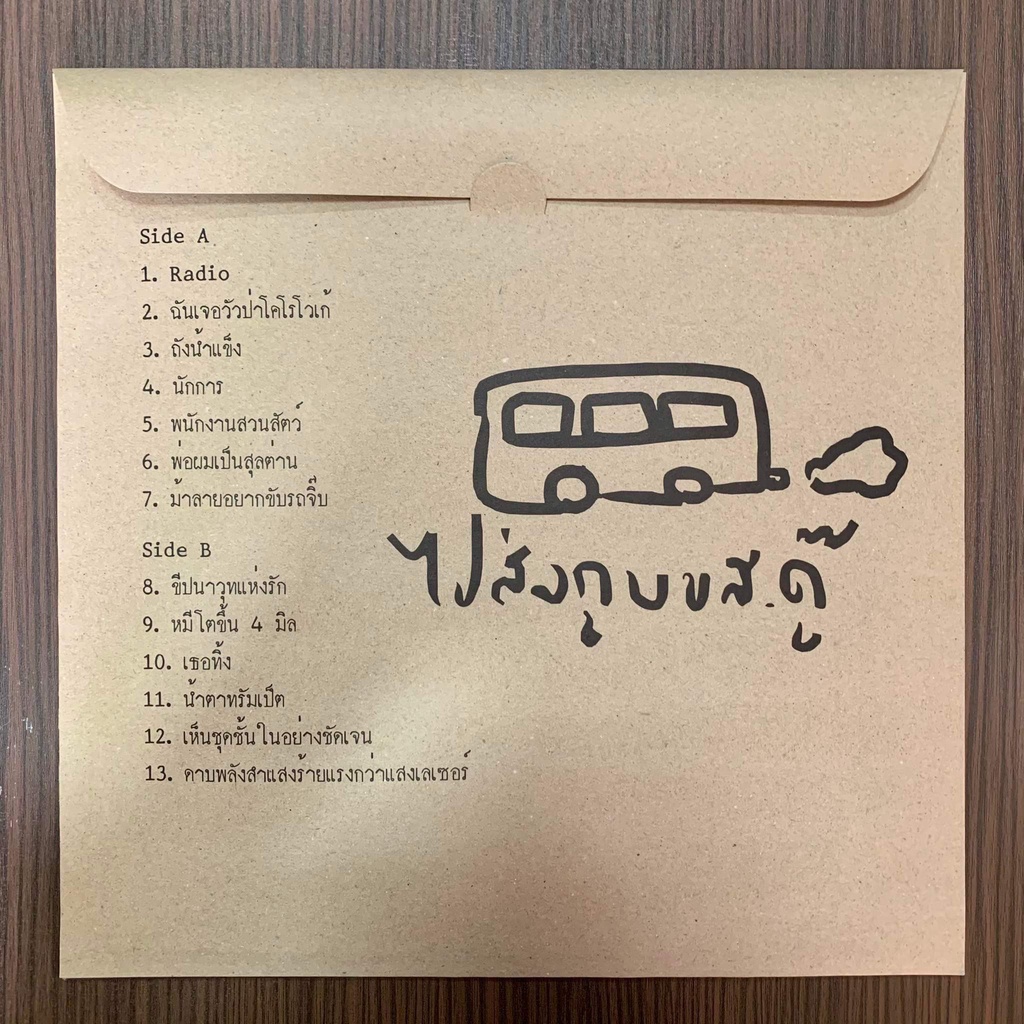 Side A
1. Radio
2. ฉันเจอวัวป่าโคโรโวเก้
3. ถังน้ำแข็ง
4. นักการ
5. พนักงานสวนสัตว์
6. พ่อผมเป็นสุลต่าน
7. ม้าลายอยากขับรถจิ๊บ
Side B
8. ขีปนาวุทแห่งรัก
9. หมีโตขึ้น 4 มิล
10. เธอทิ้ง
11. น้ำตาทรัมเป็ต
12. เห็นชุดชั้นในอย่างชัดเจน
13. ดาบพลังสำแสงร้ายแรงกว่าแสงเลเซอร์
ไปส่งกูบขส.ดู๊